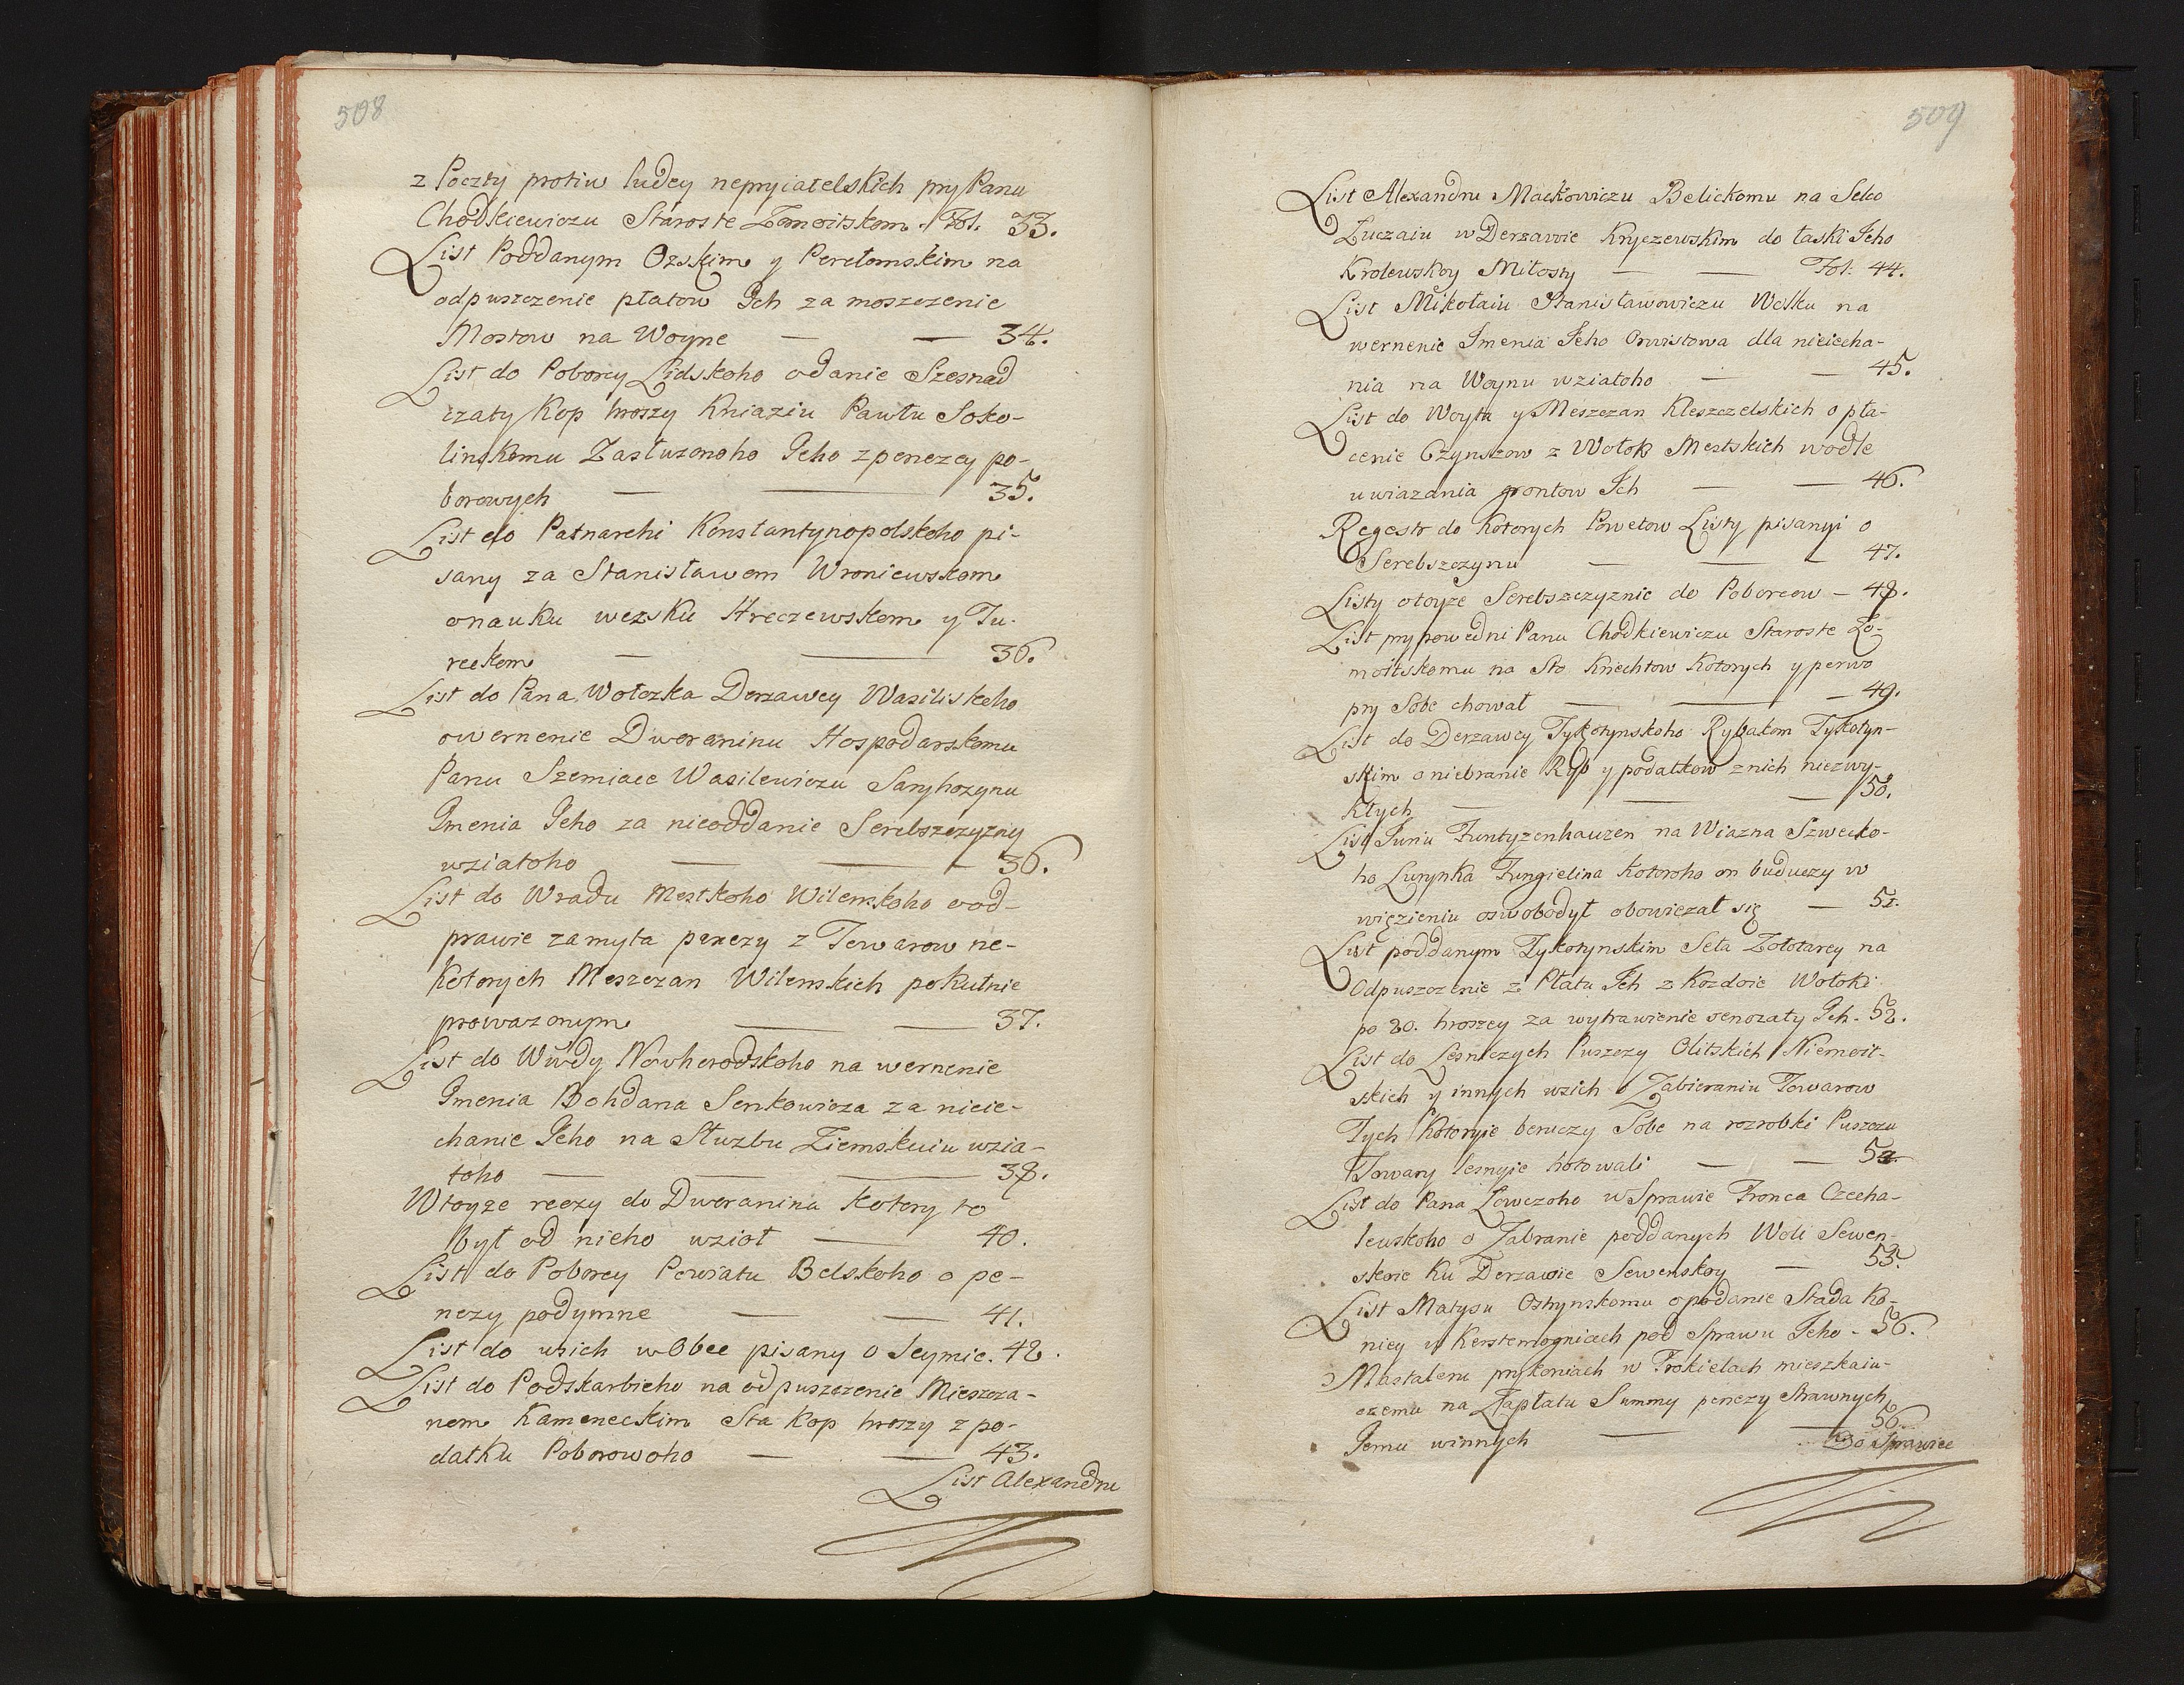 508
z Poczty protiw ludey nepryiatelskich pry Panu
Chodkiewiczu Staroste Zomoitskom. Fol. 33.
List Poddanym Ozskim y Perełomskim na
odpuszczenie płatow Ich za moszczenie
Mostow na Woynu — — 34.
List do Poborcy Lidskoho o danie Szesnad
czaty Kop hroszy Kniaziu Pawłu Soko-
linskomu Zasłużonoho Jeho z penezey po-
borowych — — 35.
List do Patriarchi Konstantynopolskoho pi-
sany za Stanisławom Wroniewskom
o nauku wezsku Hreczewskom y Tu-
reckom — — 36.
List do Pana Wołczka Derzawcy Wasiliskoho
o wernenie Dworaninu Hospodarskomu
Panu Szemiace Wasilewiczu Saryhozynu
Imenia Jeho za nieoddanie Serebszczyzny
wziatoho — — 36.
List do Wradu Mestkoho Wilenskoho o od-
prawie zamyta penezy z Towarow ne-
kotorych Meszczan Wilenskich pokutnie
prowazonym — — 37.
List do Wwdy Nowhorodskoho na wernenie
Imenia Bohdana Senkowicza za nieie-
chanie Jeho na Służbu Ziemskuiu wzia-
toho — — — 38.
W toyze reczy do Dworanina kotory to
był od nieho wzioł — 40.
List do Poborcy Powiatu Belskoho o pe-
nezy podymne — — 41.
List do wsich w Obec pisany o Seymie. 42.
List do Podskarbieho na odpuszczenie Mieszcza-
nom Kameneckim Sta Kop hroszy z po-
datku Poborowoho — — 43.
List Alexandru
509
List Alexandru Mackowiczu Belickomu na Selco
Łuczaiu w Derzawie Kryczewskim do łaski Jeho
Krolewskoy Miłosty — — Fol: 44.
List Mikołaiu Stanisławowiczu Wolku na
wernenie Imenia Jeho Orwistowa dla nieiecha-
nia na Woynu wziatoho — — 45.
List do Woyta y Meszczan Kleszczelskich o pła-
cenie Czynszow z Wołok Mestskich wodle
uwiazania gruntow Ich — — 46.
Regestr do kotorych Powetow Listy pisanyi o
Serebszczynu — — — 47.
Listy o toyze Serebszczyznie do Poborcow — 48.
List prypowedni Panu Chodkiewiczu Staroste Zo-
moitskomu na Sto Knechtow kotorych y perwo
pry Sobe chował — — — 49.
List do Derzawcy Tykotynskoho Rybakom Tykotyn-
skim o niebranie Ryb y podatkow z nich niezwy-
kłych — — — 50.
List Juriu Funtyzenhauzen na Wiazna Szwecko-
ho Lurynka Fungielina kotoroho on buduczy w
więzieniu oswobodył obowiezał się — 51.
List poddanym Tykotynskim Seła Zołotarey na
Odpuszczenie z Płatu Ich z Kozdoie Wołoki
po 20. hroszey za wytrawienie senozaty Ich. 52.
List do Lesniczych Puszczy Olitskich Niemoit-
skich y innych wsich o Zabieraniu Towarow
Tych kotoryie beruczy Sobe na rozrobki Puszczu
Towary lesnyie hotowali — — 52.
List do Pana Łowczoho w Sprawie Fronca Czecha-
lewskoho o Zabranie poddanych Woli Sewen-
skoie ku Derzawie Sewenskoy — 53.
List Matysu Ostynskomu o podanie Stada Ko-
niey w Kerstemogniach pod Sprawu Jeho. 56.
Mastaleru pry koniach w Trokielach mieszkaiu-
czomu na Zapłatu Summy penezy Strawnych
Jemu winnych — — 56.
Do Sprawiec